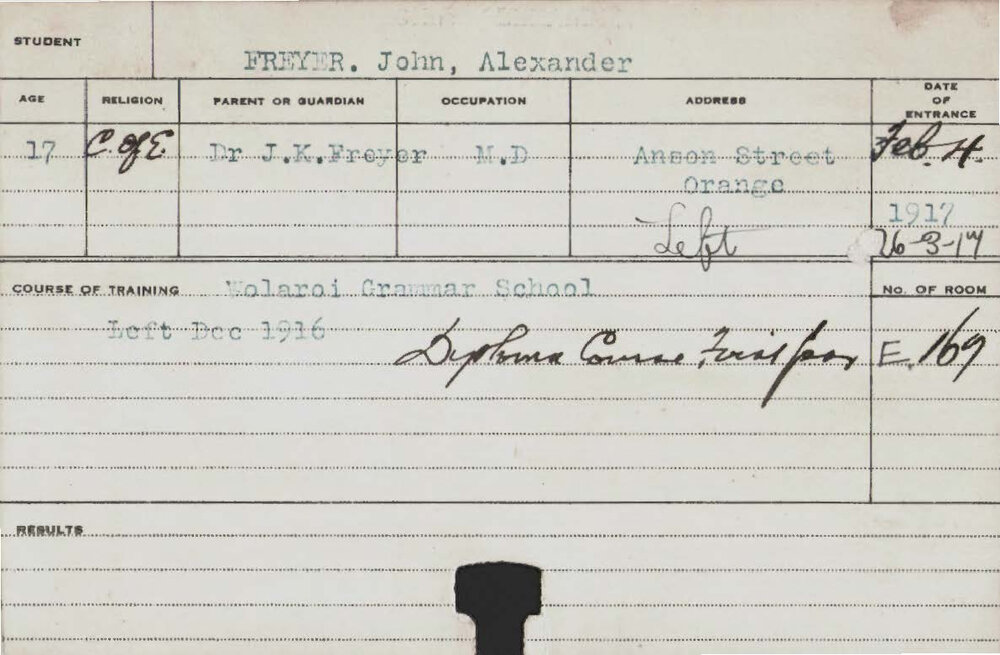 STUDENT
FREYER. John, Alexander
AGE RELIGION PARENT OR GUARDIAN OCCUPATION ADDRESS DATE OF ENTRANCE
17 C. of E. Dr J.K.Freyer M.D Anson Street Feb. 4.
Orange
1917
Left 26-3-17
COURSE OF TRAINING Wolaroi Grammar School No. OF ROOM
Left Dec 1916
Diploma Course, First year E. 169
RESULTS